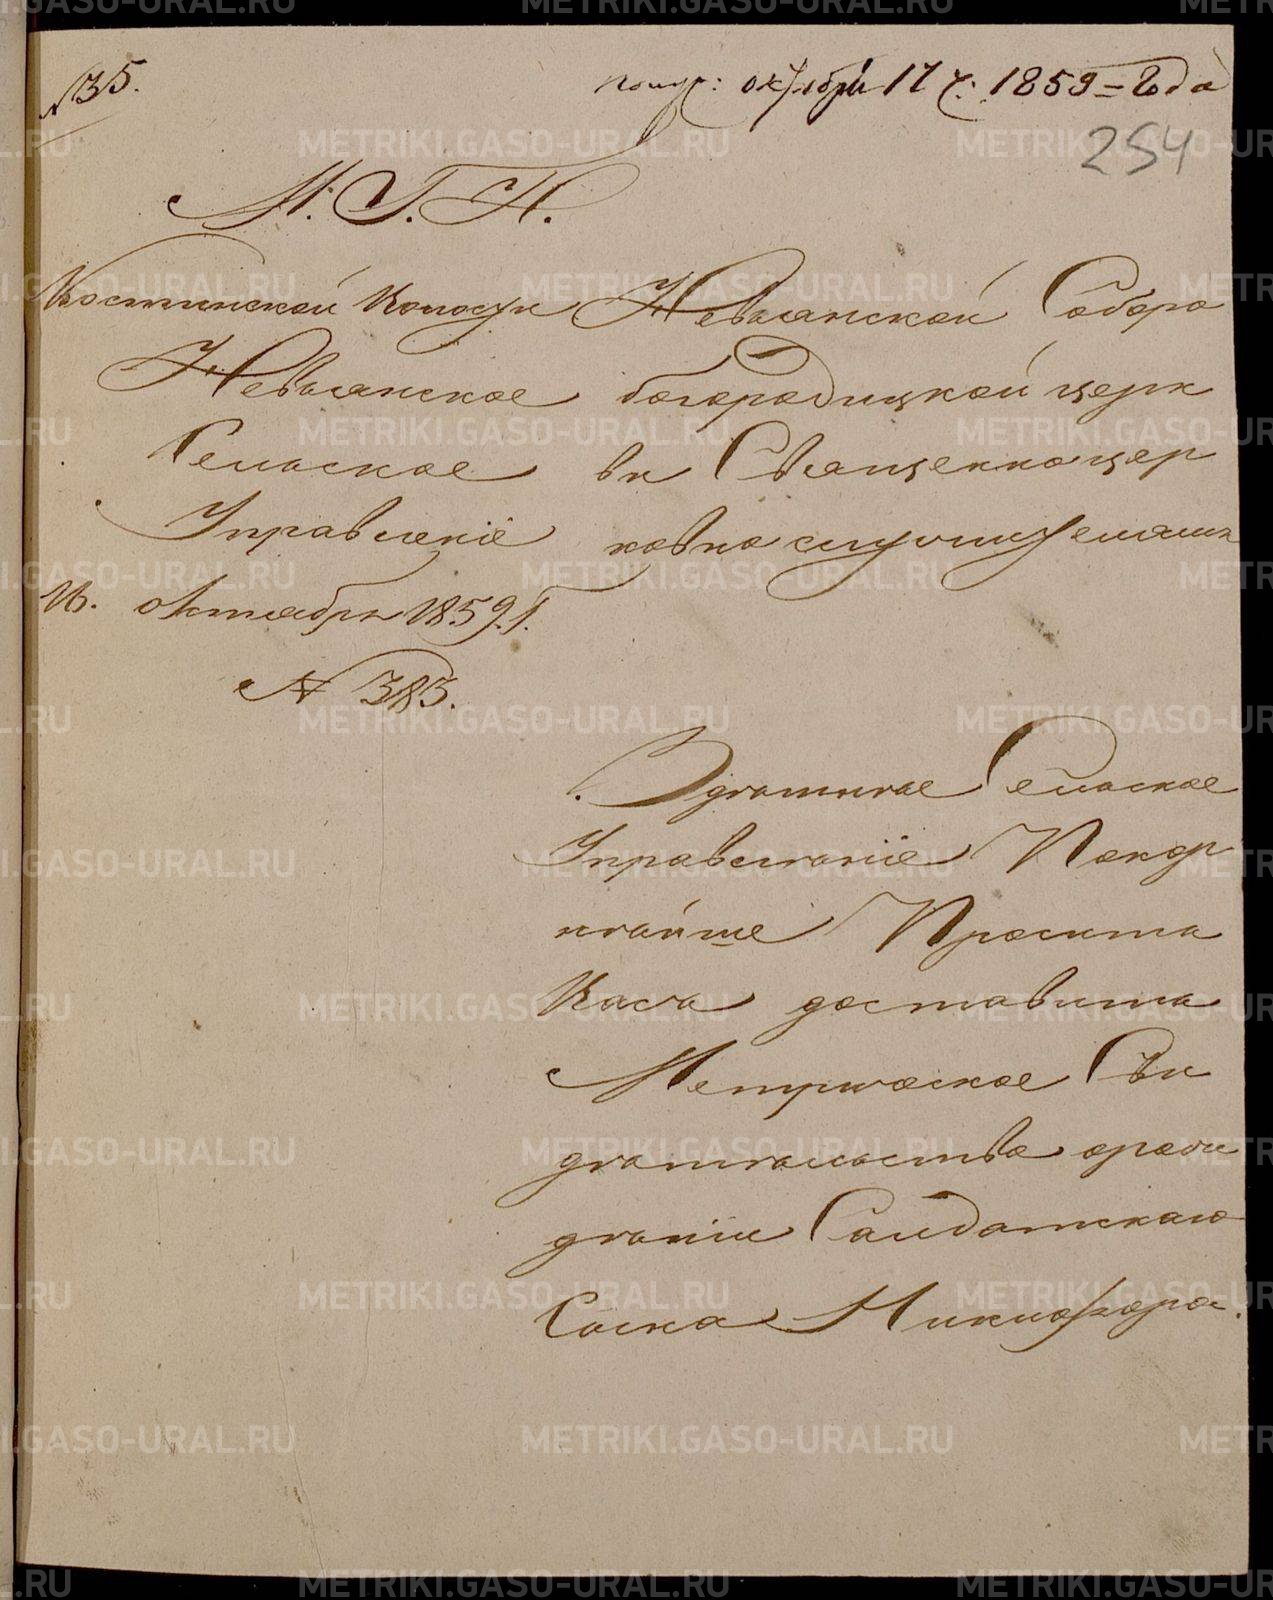 № 35.
получ: октября 17 ч: 1859 = Года
254
М. Г. П.
Костинской волости Невьянской Собора
Невьянское богородицкой церк
Сельское въ Священно цер
Управленіе ковно служителямъ
16. октября 1859. Г.
№ 383.
Сельское
Управленіе Покор
нѣйше Просита
Васъ доставита
Метрическое Сви
дѣтельство орожи
деніи Салдатскаго
Сына Никифора.
METRIKI.GASO-URAL.RU